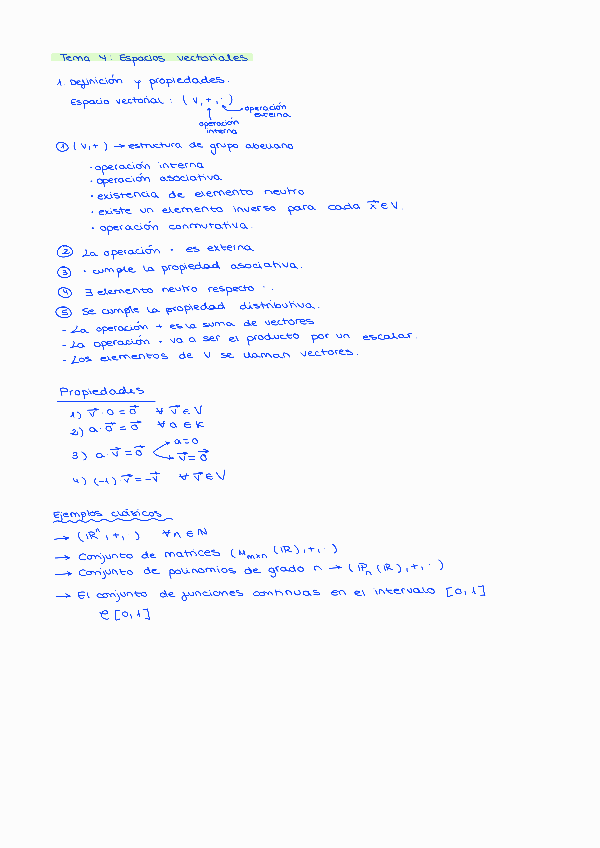 Tema 4: Espacios vectoriales
1. Definición y propiedades.
Espacio vectorial: (V, +, ·)
operación externa
operación interna
① (V, +) → estructura de grupo abeliano
· operación interna
· operación asociativa
· existencia de elemento neutro
· existe un elemento inverso para cada x⃗ ∈ V.
· operación conmutativa.
② La operación · es externa
③ · cumple la propiedad asociativa.
④ ∃ elemento neutro respecto ·.
⑤ Se cumple la propiedad distributiva.
- La operación + es la suma de vectores
- La operación · va a ser el producto por un escalar.
- Los elementos de V se llaman vectores.
Propiedades
1) v⃗ · 0 = 0⃗ ∀ v⃗ ∈ V
2) a · 0⃗ = 0⃗ ∀ a ∈ K
3) a · v⃗ = 0⃗ a = 0
v⃗ = 0⃗
4) (-1) · v⃗ = -v⃗ ∀ v⃗ ∈ V
Ejemplos clásicos
→ (ℝⁿ, +, ) ∀ n ∈ ℕ
→ Conjunto de matrices (Mm×n (ℝ), +, ·)
→ Conjunto de polinomios de grado n → (ℙn (ℝ), +, ·)
→ El conjunto de funciones continuas en el intervalo [0, 1]
𝒞 [0, 1]